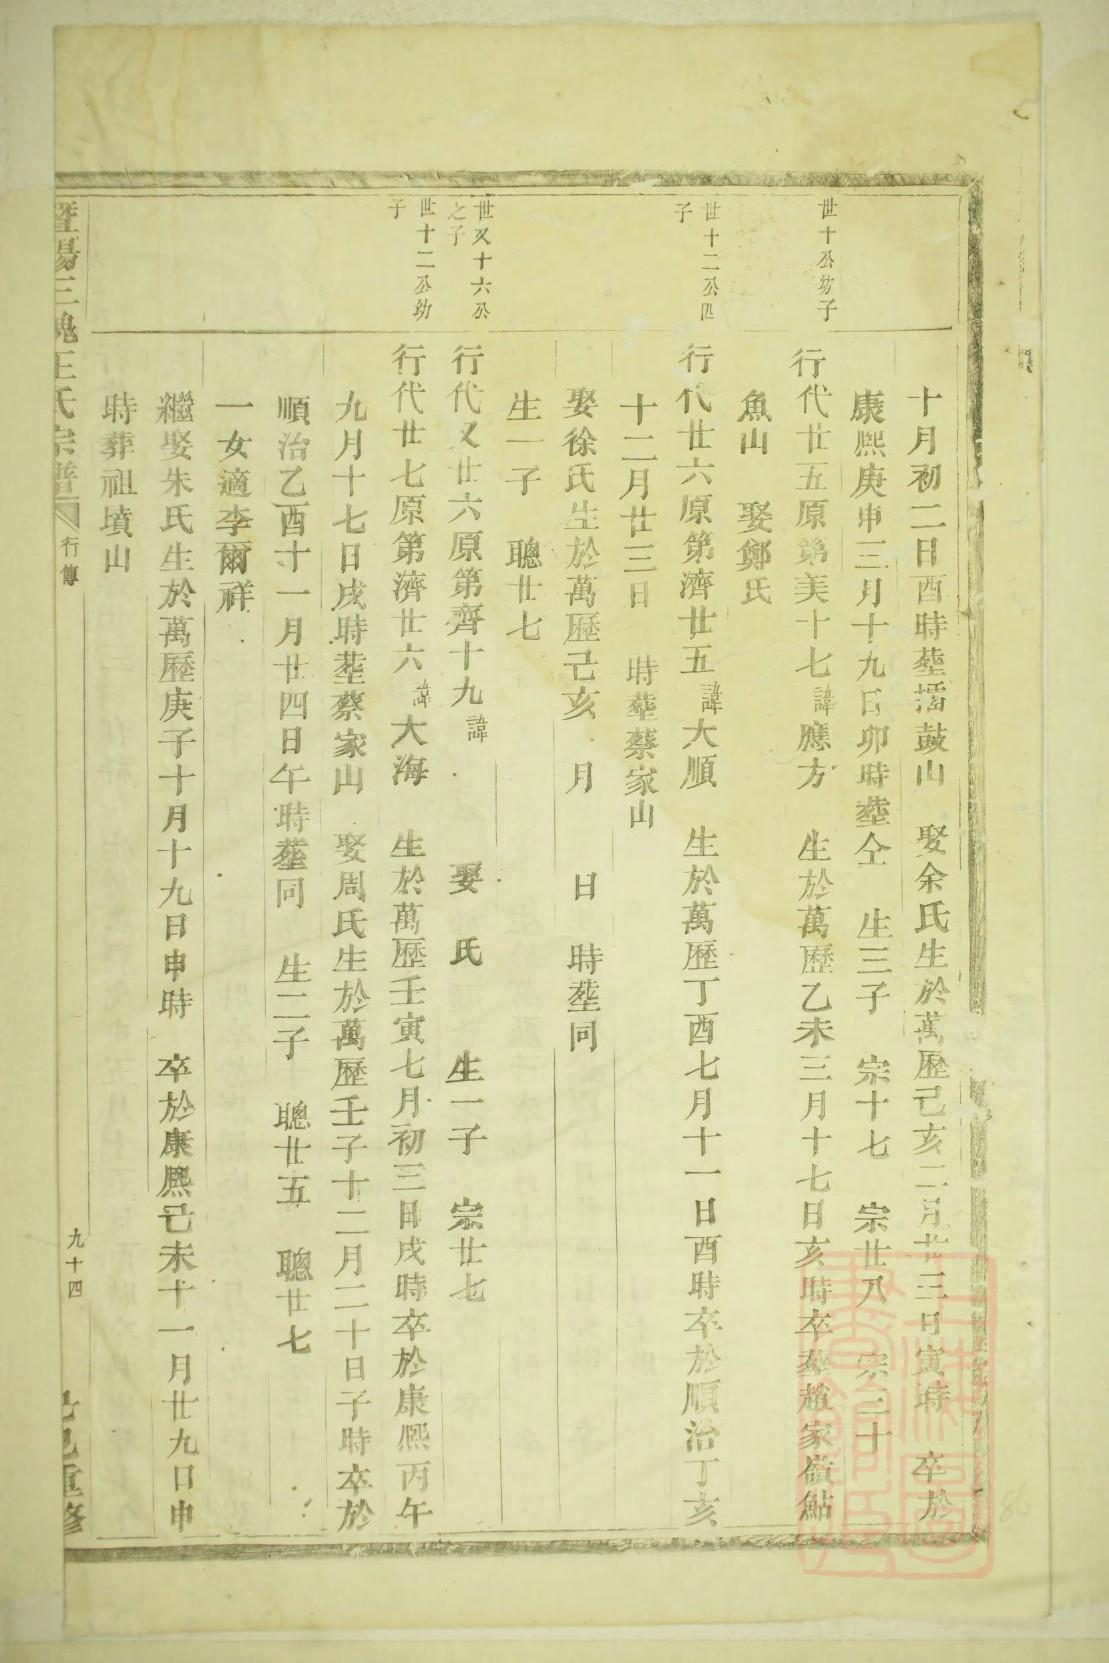 十月初二日酉時塟擂鼓山 娶余氏生於萬歷己亥二月廿三日寅時 卒於
康熙庚申三月十九日卯時塟仝 生三子 宗十七 宗廿八 宗三十
世十公幼子
行代廿五原第美十七諱應方 生於萬歷乙未三月十七日亥時卒塟趙家嶺鮎
魚山 娶鄭氏
世十二公四子
行代廿六原第濟廿五諱大順 生於萬歷丁酉七月十一日酉時卒於順治丁亥
十二月廿三日 時塟蔡家山
娶徐氏生於萬歷己亥 月 日 時塟同
生一子 聰廿七
世又十六公之子
行代又廿六原第齊十九諱 娶 氏 生一子 宗廿七
世十二公幼子
行代廿七原第濟廿六諱大海 生於萬歷壬寅七月初三日戌時卒於康熙丙午
九月十七日戌時塟蔡家山 娶周氏生於萬歷壬子十二月二十日子時卒於
順治乙酉十一月廿四日午時塟同 生二子 聰廿五 聰廿七
一女適李爾祥
繼娶朱氏生於萬歷庚子十月十九日申時 卒於康熙己未十一月廿九日申
時葬祖墳山
暨陽三槐王氏宗譜 行傳 九十四 己巳重修
上海圖書館藏